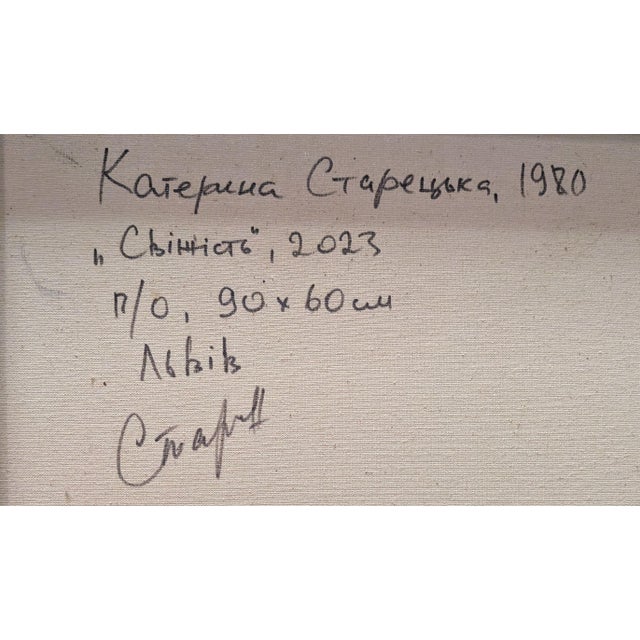 Катерина Старецька, 1980
„Свінність", 2023
п/о, 90 х 60 см
Львів